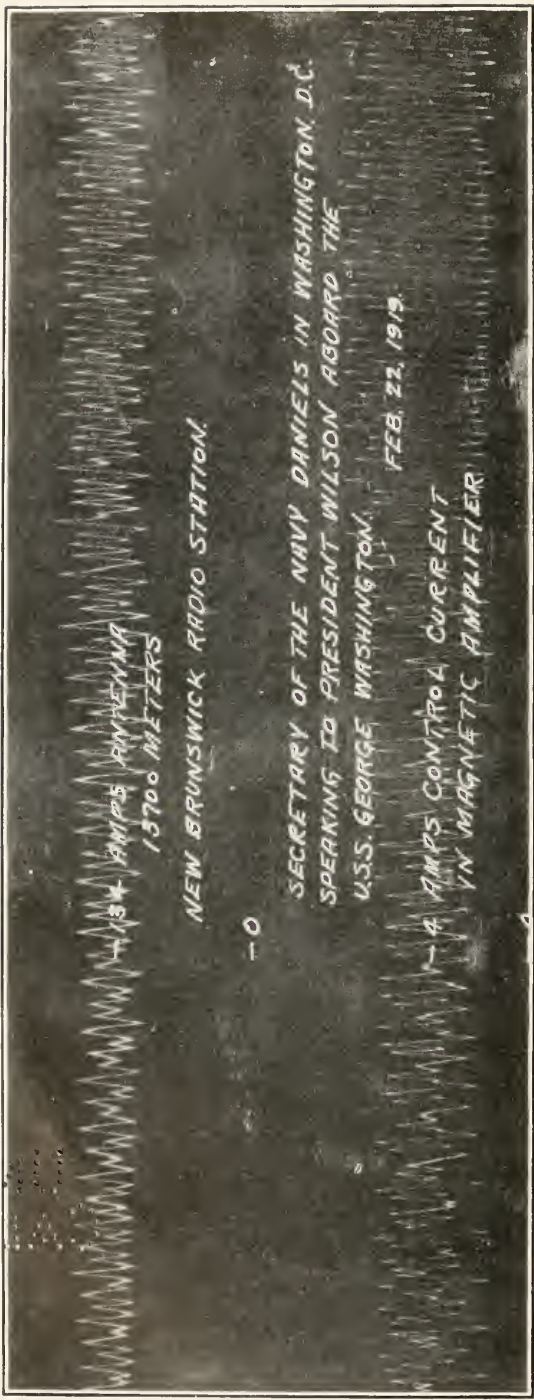 AMPS ANTENNA
13700 METERS
NEW BRUNSWICK RADIO STATION.
-0
SECRETARY OF THE NAVY DANIELS IN WASHINGTON D.C.
SPEAKING TO PRESIDENT WILSON ABOARD THE
U.S.S. GEORGE WASHINGTON.
FEB. 22, 1919.
-4 AMPS CONTROL CURRENT
IN MAGNETIC AMPLIFIER